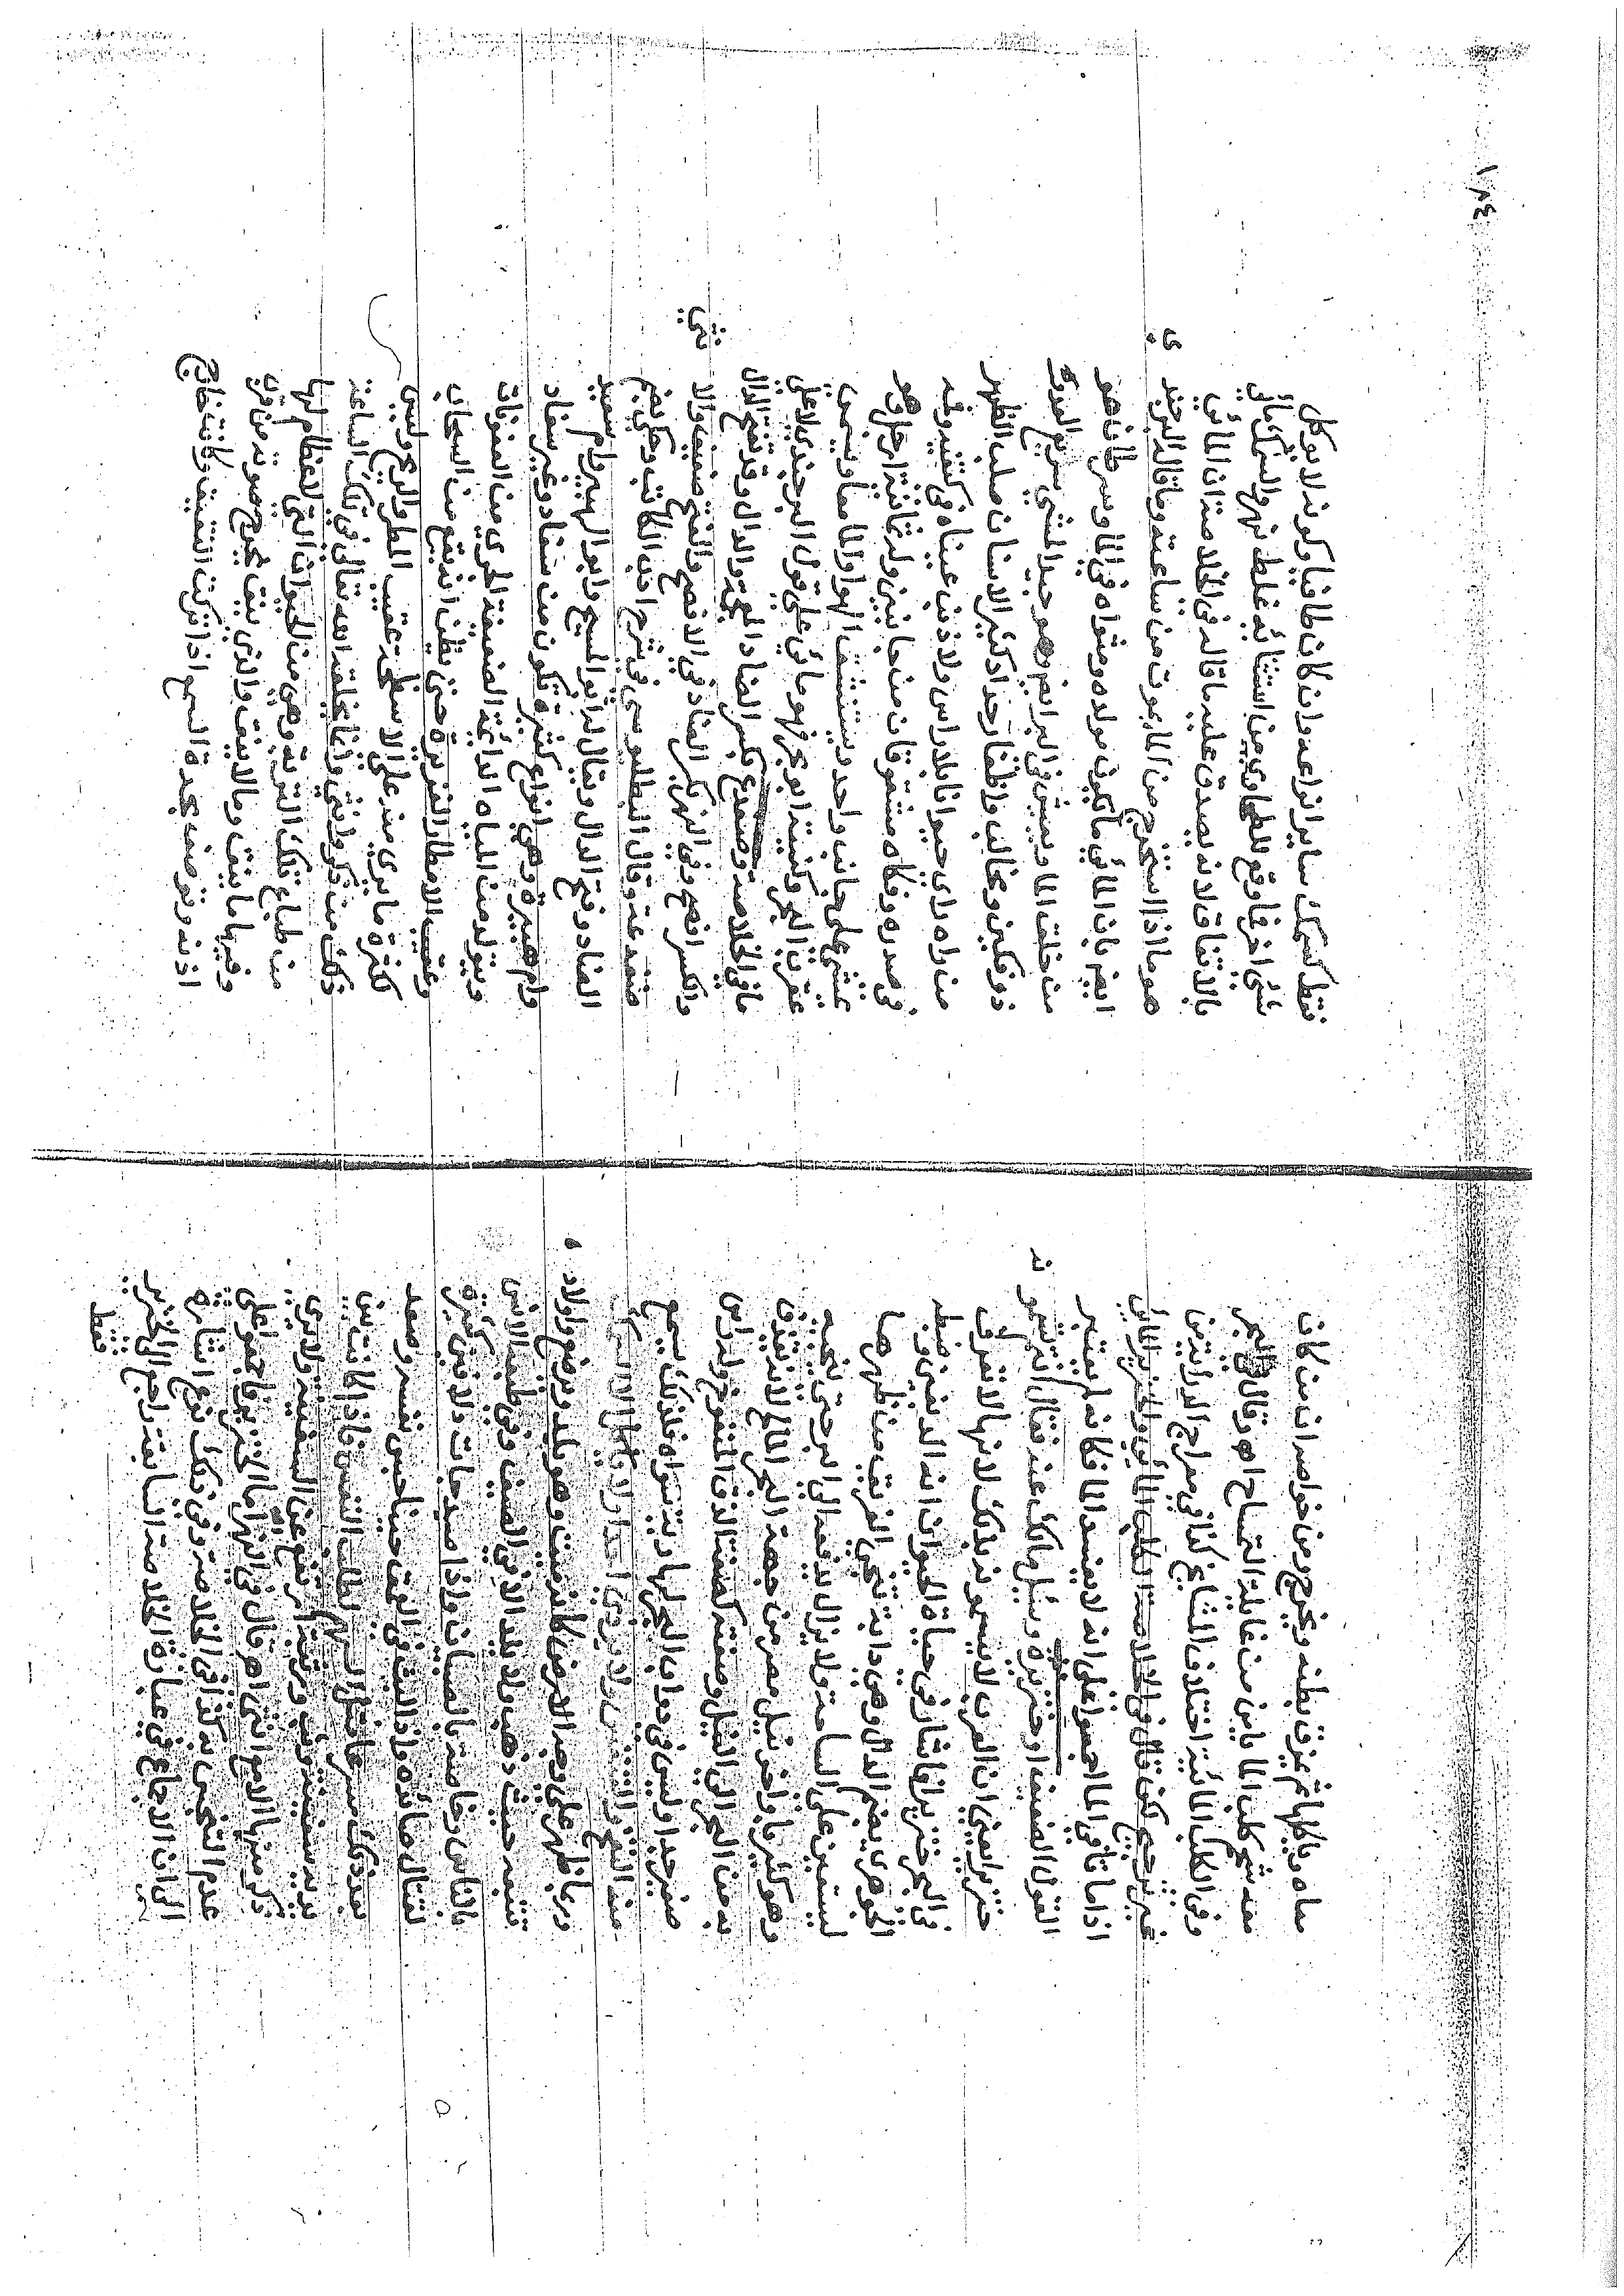 ساه وياكلها ثم يمزق بطنه ويخرج ومن خواصه ان من كان
معه شحم كلب الماء امن من غايلة التمساح اه وقال في البحر
وفي الكلب المائية اختلاف المشايخ كذا في معراج الدراية من
غير ترجيح لكن قال في الخلاصة الكلب المائي والخنزير المائي
اذا ماتا في الماء اجمعوا على انه لا يفسد الماء فكانه لم يعتبر
القول الضعيف او خنزيره وسئل مالك عنه فقال انتم تسمونه
خنزيرا يعني ان العرب لا يسمونه بذلك لانها لا تعرف
في البحر خنزيرا في حياة الحيوان انه الدلفين وضبطه
الجوهري بضم الدال وهي دابة تنجي الغريق من ظهرها
ليستعين على السباحة ولا يزال يدفعه الى البر حتى ينجيه
وهو كثير باواخر نيل مصر من جهة البحر المالح لانه يقذف
به من البحر الى النيل وصفته كصفة الزق المنفوخ وله راس
صغير جدا وليس في دواب البحر ما له رية سواه فلذلك يسمع
منه النفخ والنفس ولا يوذي احدا ولا ياكل الا السمك
وربما ظهر على وجه الارض كانه ميت وهو يلد ويرضع واولاده
تتبعه حيث ذهب ولا يلد الا في الصيف وفي طبعه الانس
بالناس وخاصة بالصبيان واذا صيد جات دلافين كثيرة
لقتال صائده واذا لبث في العمق حينا حبس نفسه وصعد
بعد ذلك مسرعا مثل السهم لطلب النفس فاذا كانت بين
يديه سفينة وثب وثبة ارتفع عن السفينة ولا يرى
ذكر منها الا مع انثى اه قال في النهر اما الخنزير فاجمعوا على
عدم التنجس به كذا في الخلاصة وفي ذلك نوع اشارة
الى ان الاجماع في عبارة الخلاصة السابقة راجع الى الخنزير
فقط
١٨٤
فقط كسمك سايرانواعه وان كان طافيا وكونه لا يوكل
شئ اخر فما وقع للطحاوي من استثنائه غلط نهر والسمك مائي
بالاتفاق لانه يصدق عليه ما قاله في الخلاصة ان المائي
هو ما اذا استخرج من الماء يموت من ساعته وما قاله البرجندي
ايضا بان المائي ما يكون مولده ومثواه في الماء وسرطان هو
من خلق الماء ويعيش في البر ايضا وهو جيد المشي سريع العدو
ذو فكين ومخالب واظفار حداد كثير الاسنان صلب الظهر
من راه راى حيوانا بلا راس ولا ذنب عيناه في كتفيه وفمه
في صدره وفكاه مشقوقان من جانبين وله ثمانية ارجل وهو
يمشي على جانب واحد ويستنشق الهوا والماء معا ويسمى
عقرب البحر وكنيته ابو بحر فهو مائي على قول البرجندي لا على
ما في الخلاصة وضفدع بكسر الضاد المعجمة والدال وقد تفتح الدال
والكسر افصح وفي النهر بكسر الضاد في الافصح والفتح ضعيف والانثى
ضفدعة وقال البطليوسي في شرح ادب الكاتب وحكي بضم
الضاد وفتح الدال ويقال له ابو المسيح وابو هبيرة وام معبد
وام هبيرة وهي انواع كثيرة وتكون من سفاد وغير سفاد
ويتولد من المياه الدائمة الضعيفة الجري ومن العفونات
وعقيب الامطار الغزيرة حتى يظن انه يقع من السحاب
لكثرة ما يرى منه على الاسطحة عقيب المطر والريح وليس
ذلك من ذكر وانثى وانما يخلقه الله تعالى في تلك الساعة
من طباع تلك التربة وهي من الحيوان التي لا عظام لها
وفيها ما ينق وما لا ينق والذي ينق يخرج صوته من قرب
اذنه وتوصف بحدة السمع اذا تركت النقيق وكانت خارج